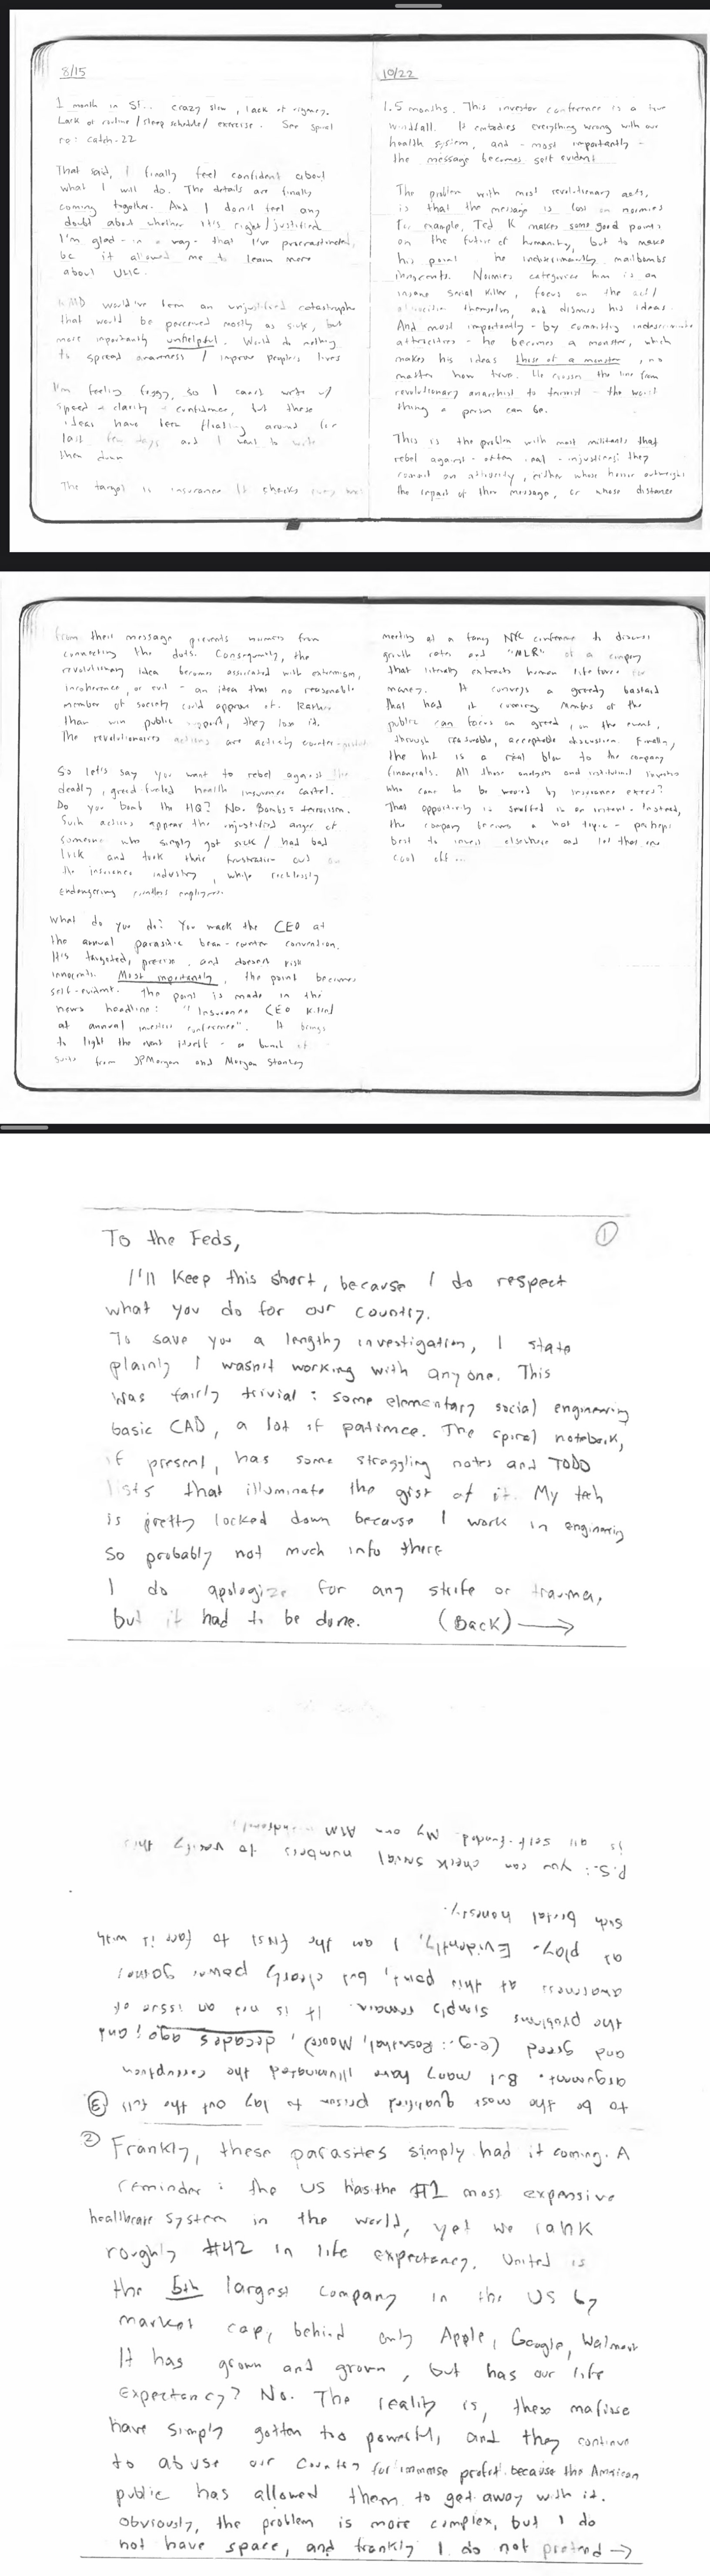 8/15
1 month in SF.. crazy slow, lack of urgency.
Lack of routine / sleep schedule / exercise. See spiral
ro: catch-22
That said, I finally feel confident about
what I will do. The details are finally
coming together. And I don't feel any
doubt about whether it's right/justified.
I'm glad - in a way - that I've procrastinated,
bc it allowed me to learn more
about UHC.
KMD would've been an unjustified catastrophe
that would be perceived mostly as sick, but
more importantly unhelpful. Would do nothing
to spread awareness / improve people's lives
I'm feeling foggy, so I can't write w/
speed + clarity + confidence, but these
ideas have been floating around for
last few days and I want to write
them down
The target is insurance It checks every box
10/22
1.5 months. This investor conference is a true
windfall. It embodies everything wrong with our
health system, and - most importantly -
the message becomes self evident
The problem with most revolutionary acts,
is that the message is lost on normies
For example, Ted K makes some good points
on the future of humanity, but to make
his point he indiscriminantly mailbombs
innocents. Normies categorize him is an
insane serial killer, focus on the act/
atrocities themselves, and dismiss his ideas.
And most importantly - by committing indiscriminate
atrocities - he becomes a monster, which
makes his ideas those of a monster, no
matter how true. He crosses the line from
revolutionary anarchist to terrorist - the worst
thing a person can be.
This is the problem with most militants that
rebel against - often real - injustices: they
commit an atrocity, either whose horror outweighs
the impact of their message, or whose distance
from their message prevents normies from
connecting the dots. Consequently, the
revolutionary idea becomes associated with extremism,
incoherence, or evil - an idea that no reasonable
member of society could approve of. Rather
than win public support, they lose it.
The revolutionaries actions are actively counter-productive
So let's say you want to rebel against the
deadly, greed fueled health insurance cartel.
Do you bomb the HQ? No. Bombs = terrorism.
Such actions appear the unjustified anger of
someone who simply got sick / had bad
luck and took their frustration out on
the insurance industry, while recklessly
endangering countless employees.
What do you do? You wack the CEO at
the annual parasitic bean-counter convention.
It's targeted, precise, and doesn't risk
innocents. Most importantly, the point becomes
self-evident. The point is made in the
news headline: "Insurance CEO killed
at annual investors conference". It brings
to light the event itself - a bunch of
suits from JPMorgan and Morgan Stanley
meeting at a fancy NYC conference to discuss
growth rates and "MLR" of a company
that literally extracts human life force for
money. It conveys a greedy bastard
that had it coming. Members of the
public can focus on greed, on the event,
through reasonable, acceptable discussion. Finally,
the hit is a real blow to the company
financials. All those analysts and institutional investors
who came to be wooed by insurance execs?
That opportunity is snuffed in an instant. Instead,
the company becomes a hot topic - perhaps
best to invest elsewhere and let that one
cool off ...
①
To the Feds,
I'll keep this short, because I do respect
what you do for our country.
To save you a lengthy investigation, I state
plainly I wasn't working with anyone. This
was fairly trivial: some elementary social engineering
basic CAD, a lot of patience. The spiral notebook,
if present, has some straggling notes and TODO
lists that illuminate the gist of it. My tech
is pretty locked down because I work in engineering
so probably not much info there
I do apologize for any strife or trauma,
but it had to be done. (Back) →
② Frankly, these parasites simply had it coming. A
reminder: the US has the #1 most expensive
healthcare system in the world, yet we rank
roughly #42 in life expectancy. United is
the 5th largest company in the US by
market cap, behind only Apple, Google, Walmart
It has grown and grown, but has our life
expectancy? No. The reality is, these mafiose
have simply gotten too powerful, and they continue
to abuse our country for immense profit because the American
public has allowed them to get away with it.
Obviously, the problem is more complex, but I do
not have space, and frankly I do not pretend →
③ to be the most qualified person to lay out the full
argument. But many have illuminated the corruption
and greed (e.g.: Rosenthal, Moore), decades ago; and
the problems simply remain. It is not an issue of
awareness at this point, but clearly power games
at play. Evidently, I am the first to face it with
such brutal honesty.
P.S.: you can check serial numbers to verify this
is all self-funded. My own ATM withdrawals